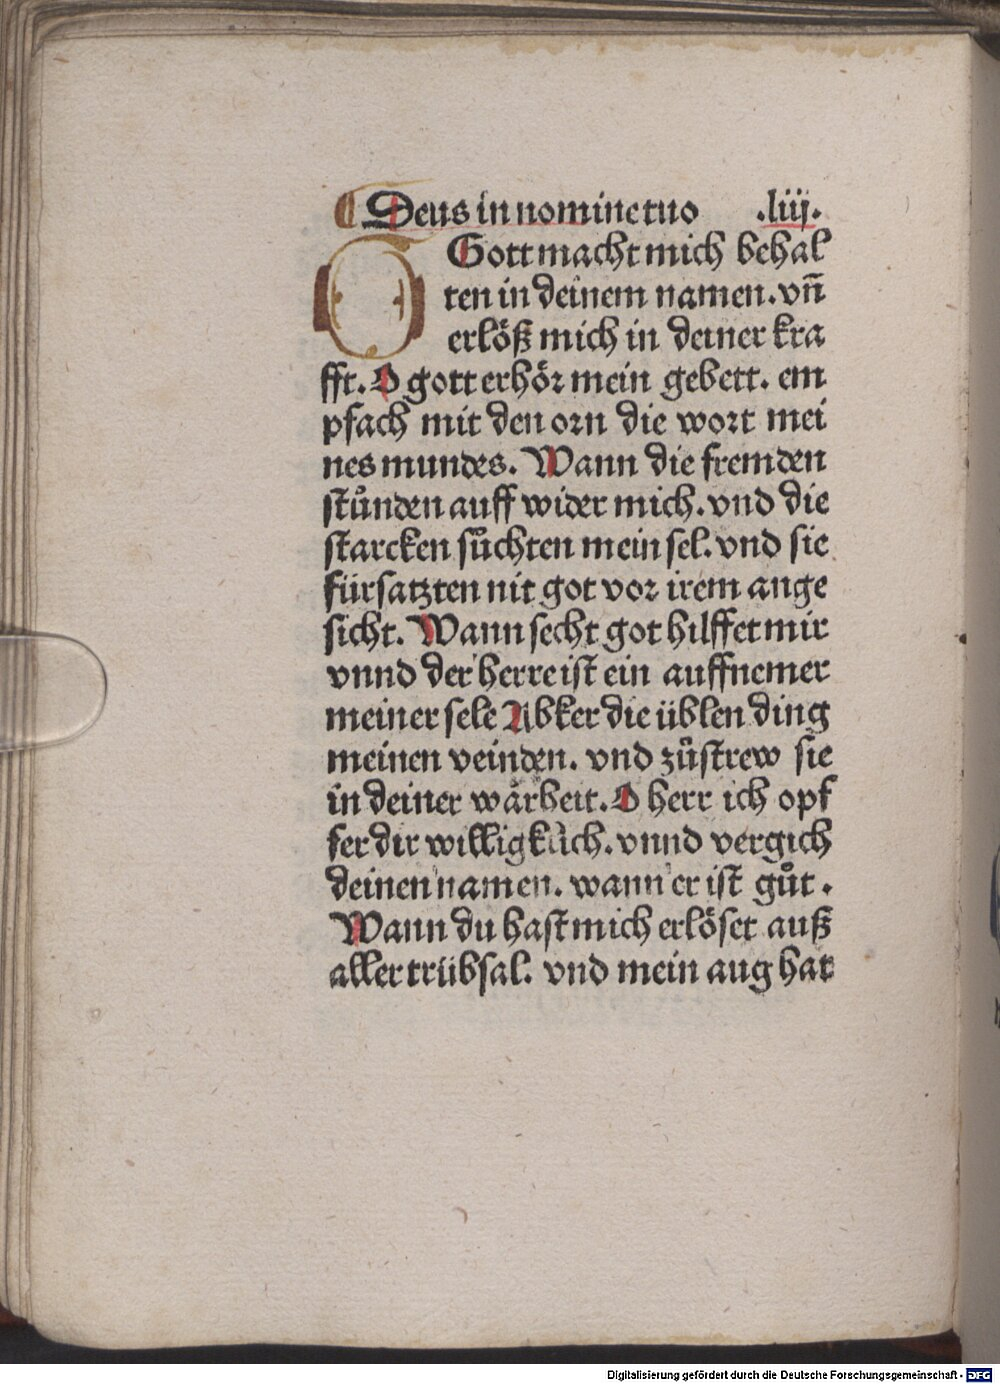 ¶ Deus in nomine tuo .liij.
O Gott macht mich behal
ten in deinem namen. vn̄
erlöß mich in deiner kra
fft. O gott erhör mein gebett. em
pfach mit den orn die wort mei
nes mundes. Wann die fremden
stůnden auff wider mich. vnd die
starcken sůchten mein sel. vnd sie
fürsatzten nit got vor irem ange
sicht. Wann secht got hilffet mir
vnnd der herre ist ein auffnemer
meiner sele Abker die üblen ding
meinen veinden. vnd zůstrew sie
in deiner warheit. O herr ich opf
fer dir willigklich. vnnd vergich
deinen namen. wann er ist gůt.
Wann du hast mich erlöset auß
aller trübsal. vnd mein aug hat
Digitalisierung gefördert durch die Deutsche Forschungsgemeinschaft - DFG